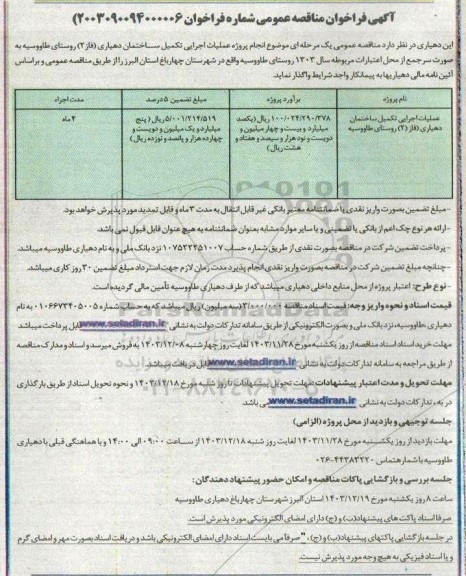 آگهی فراخوان مناقصه عمومی شماره فراخوان ۲۰۰۳۰۹۰۰۹۴۰۰۰۰۰۶)
این دهیاری در نظر دارد مناقصه عمومی یک مرحله ای موضوع انجام پروژه عملیات اجرایی تکمیل ساختمان دهیاری (فاز۲) روستای طاووسیه به
صورت سرجمع از محل اعتبارات مربوطه سال ۱۴۰۳ روستای طاووسیه واقع در شهرستان چهارباغ استان البرز را از طریق مناقصه عمومی و براساس
آئین نامه مالی دهیاریها به پیمانکار واجد شرایط واگذار نماید.
نام پروژه برآورد پروژه مبلغ تضمین ۵درصد مدت اجراء
عملیات اجرایی تکمیل ساختمان ۱۰۰/۰۲۴/۲۹۰/۳۷۸ ریال (یکصد ۵/۰۰۱/۲۱۴/۵۱۹ ریال (پنج ۴ ماه
دهیاری (فاز (۲) روستای طاووسیه میلیارد و بیست و چهار میلیون و میلیارد و یک میلیون و دویست و
دویست و نود هزار و سیصد و هفتاد و چهارده هزار و پانصد و نوزده ریال)
هشت ریال)
- مبلغ تضمین بصورت واریز نقدی یا ضمانتنامه معتبر بانکی غیر قابل انتقال به مدت ۳ ماه و قابل تمدید مورد پذیرش خواهد بود.
- ارائه هر نوع چک اعم از بانکی یا تضمینی و یا سایر موارد مشابه بعنوان ضمانتنامه به هیچ عنوان قابل قبول نمی باشد.
- پرداخت تضمین شرکت در مناقصه بصورت نقدی از طریق شماره حساب ۱۰۷۵۲۲۴۵۱۰۰۷ نزد بانک ملی و به نام دهیاری طاووسیه میباشد.
- چنانچه مبلغ تضمین شرکت در مناقصه بصورت واریز نقدی انجام پذیرد مدت زمان لازم جهت استرداد مبلغ تضمین ۳۰ روز کاری میباشد.
- نوع طرح: اعتبار پروژه از محل منابع داخلی دهیاری میباشد که از طرف دهیاری طاووسیه تأمین مالی گردیده است.
قیمت اسناد و نحوه واریز وجه: قیمت اسناد مناقصه ۳/۰۰۰/۰۰۰ (سه میلیون) ریال میباشد که به حساب شماره ۰۱۰۶۶۷۳۴۰۵۰۰۵ به نام
دهیاری طاووسیه، نزد بانک ملی و بصورت الکترونیکی از طریق سامانه تدارکات دولت به نشانی www.setadiran.ir قابل پرداخت میباشد
مهلت خرید اسناد مناقصه از روز یکشنبه مورخ ۱۴۰۳/۱۱/۲۸ لغایت روز چهارشنبه ۱۴۰۳/۱۲/۰۸ به فروش میرسد و اسناد و مدارک مناقصه
از طریق مراجعه به سامانه تدارکات دولت به نشانی www.setadiran.ir قابل دریافت میباشد.
مهلت تحویل و مدت اعتبار پیشنهادات: مهلت تحویل پیشنهادات تا روز شنبه مورخ ۱۴۰۳/۱۲/۱۸ و نحوه تحویل اسناد از طریق بارگذاری
در تدارکات دولت به نشانی www.setadiran.ir می باشد.
جلسه توجیهی و بازدید از محل پروژه (الزامی)
مهلت بازدید از روز یکشنبه مورخ ۱۴۰۳/۱۱/۲۸ لغایت روز شنبه ۱۴۰۳/۱۲/۱۸ از ساعت ۰۹:۰۰ الی ۱۴:۰۰ و با هماهنگی قبلی با دهیاری
طاووسیه با شماره تماس ۴۴۳۸۳۲۲۰-۰۲۶
جلسه بررسی و بازگشایی پاکات مناقصه و امکان حضور پیشنهاد دهندگان:
ساعت ۸ روز یکشنبه مورخ ۱۴۰۳/۱۲/۱۹ استان البرز شهرستان چهارباغ دهیاری طاووسیه
صرفا اسناد پاکت های پیشنهاد(ب) و (ج) دارای امضای الکترونیکی مورد پذیرش است.
در جلسه بازگشایی پاکتهای پیشنهاد(ب) و (ج)، "صرفا می بایست اسناد دارای امضای الکترونیکی باشد و دریافت اسناد بصورت مهر و امضای گرم
و یا اسناد فیزیکی به هیچ وجه مورد پذیرش نیست.